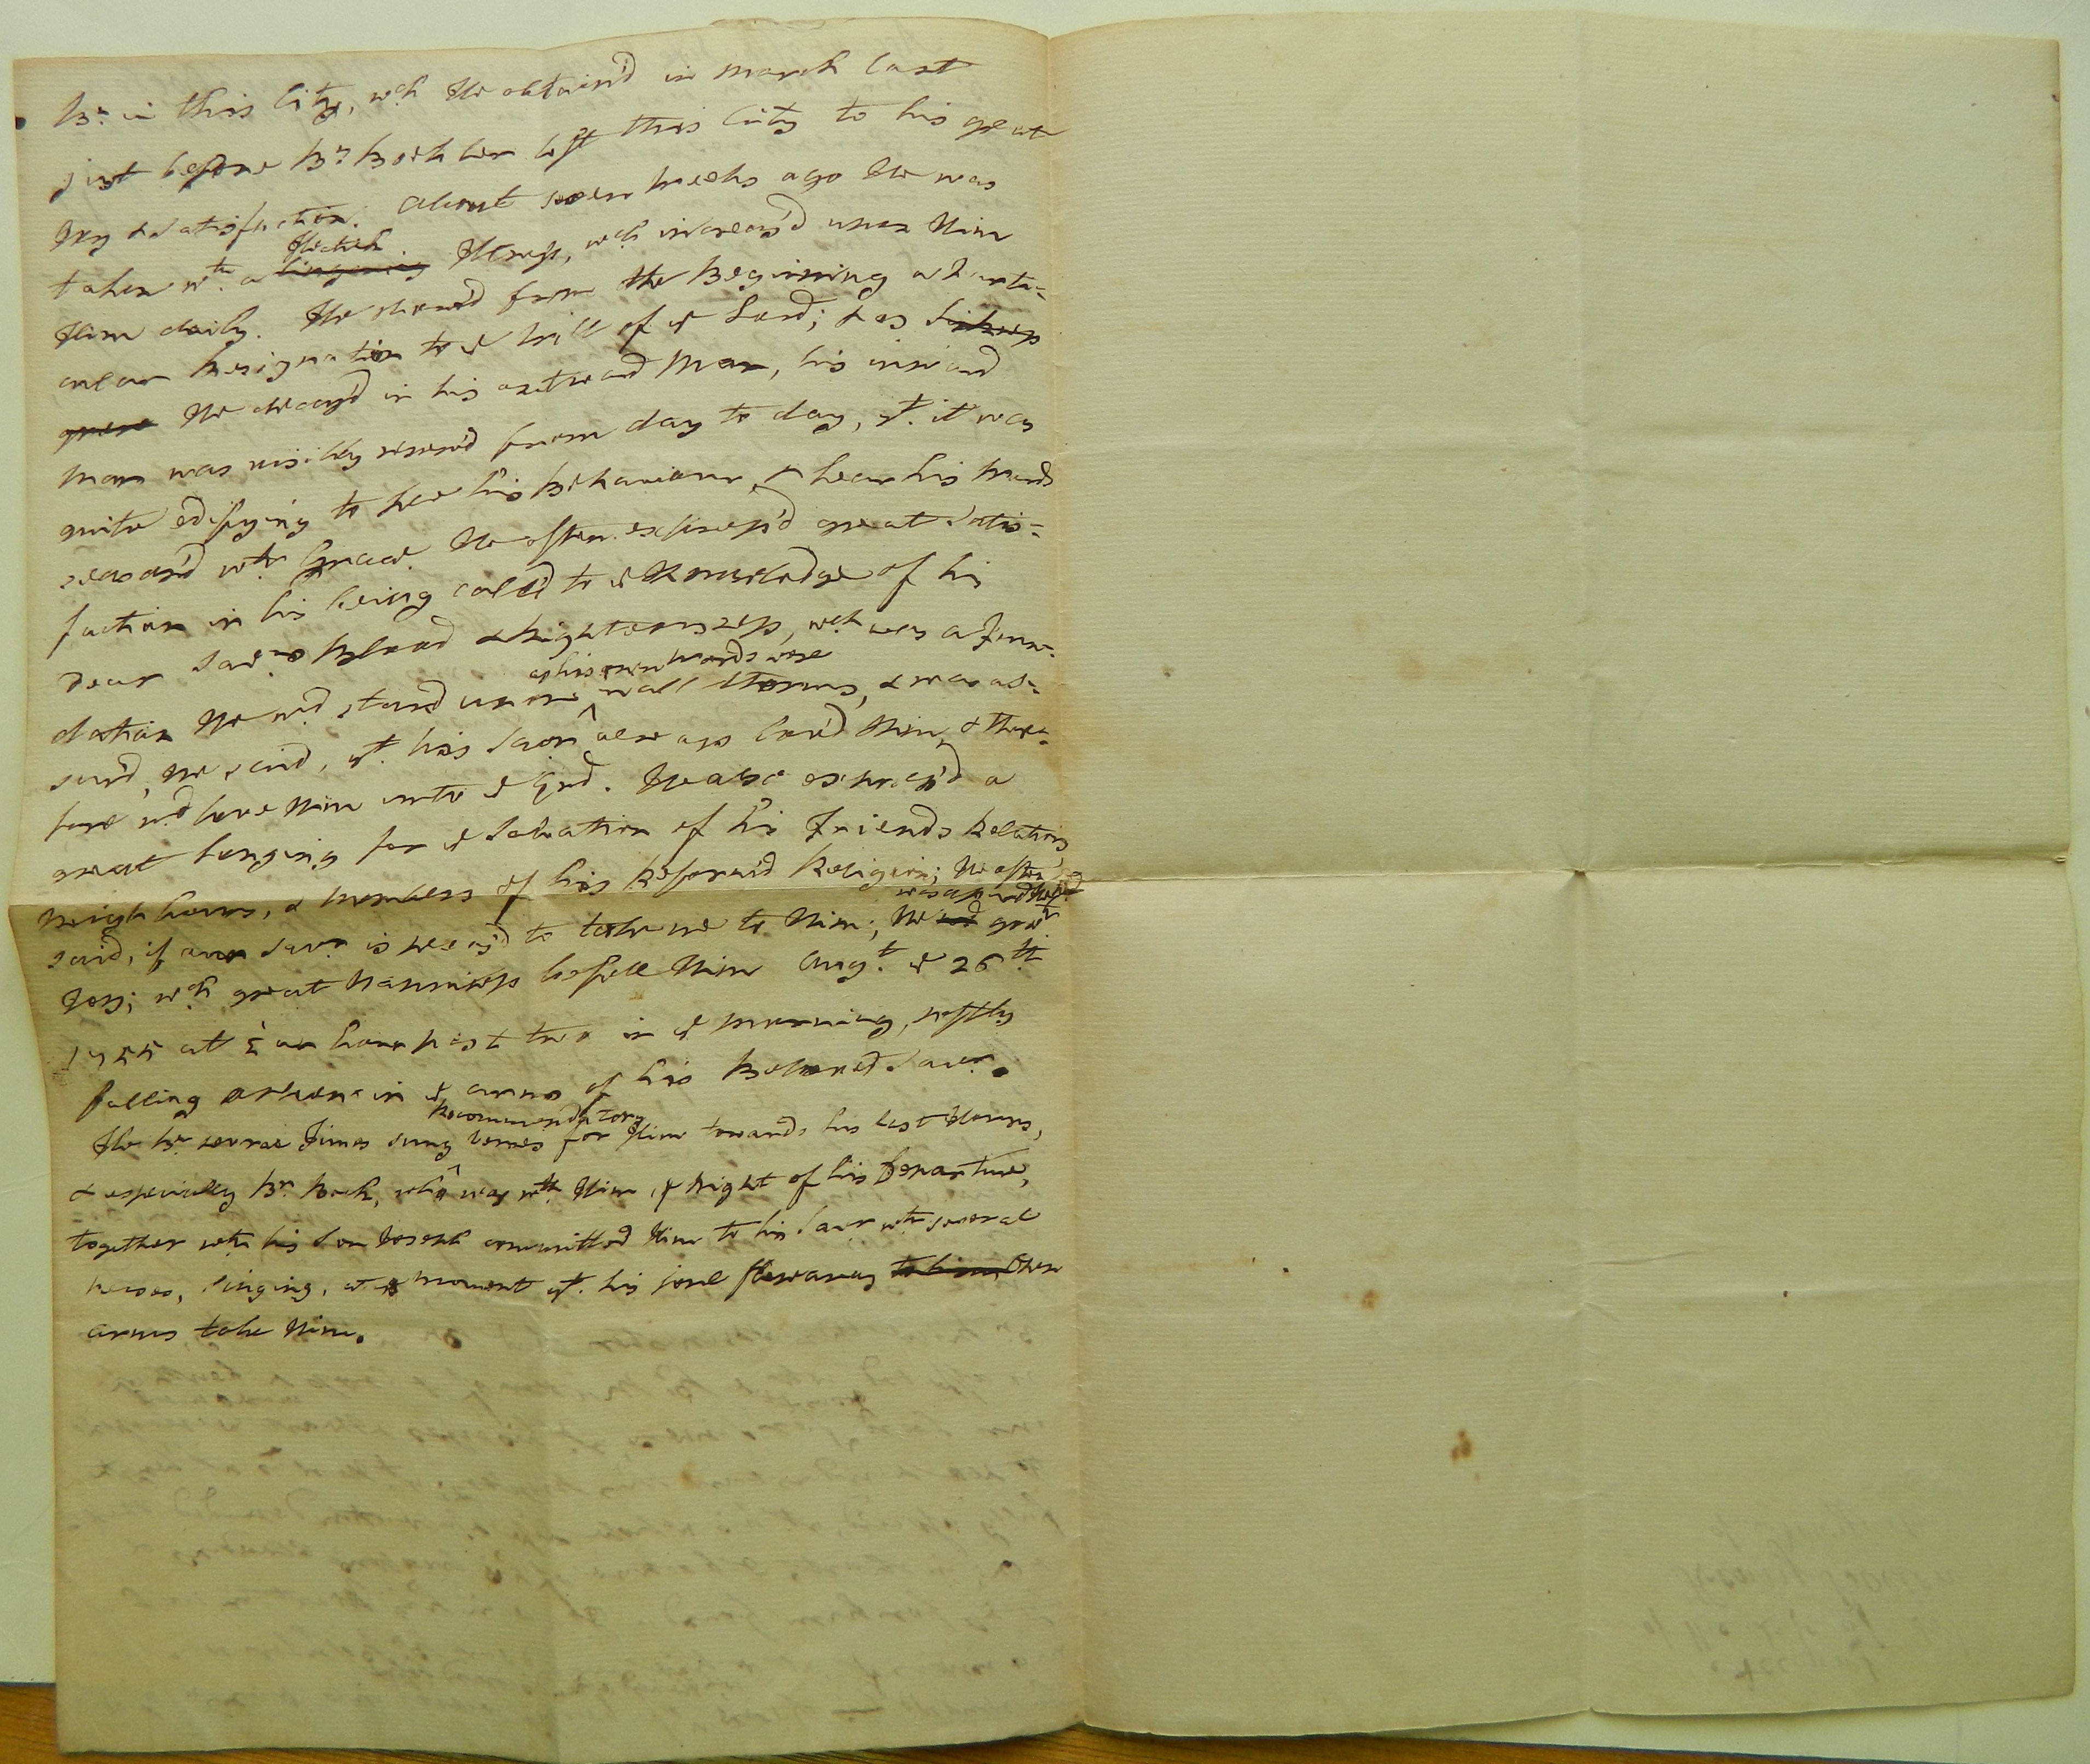 Br. in this City, wch He obtain'd in March last
just before Br. Boehler left this City to his great
Joy & Satisfaction. About seven weeks ago He was
taken wth. a lingering Hectick Illness, wch increas'd upon Him
Him daily. He shew'd from the Beginning a particu-
cular Resignation to ye Will of ye Lord; & as
He decay'd in his outward Man, his inward
Man was visibly renew'd from day to day, yt. it was
quite edifying to see his Behaviour & hear his Words
season'd wth Grace. He often express'd great Satis-
faction in his being call'd to ye Knowledge of his
Dear Savrs Blood & Righteousness, wch was a Foun-
as his own words were
dation He wd stand upon in all storms, & was as-
sur'd, He said, yt. his Savr always lov'd Him, & there-
fore wd love Him unto ye End. He also express'd a
great longing for ye Salvation of his Friends Relations
Neighbours, & members of his Reform'd Religion; He often
said, if our Savr. is pleas'd to take me to Him; He
Joy; wch great Happiness befell Him Augt. ye 26th
1755 at ½ an hour past two in ye morning, softly
falling asleep in ye arms of his Beloved Savr.
Recommendatory
The Br. several Times sung verses for Him towards his last Hours,
& especially Br. , who was wth Him ye Night of his Departure,
together wth his Son Joseph committed Him to his Savr wth several
verses, singing, at ye moment yt. his soul flew away to him, Then
arms take Him.